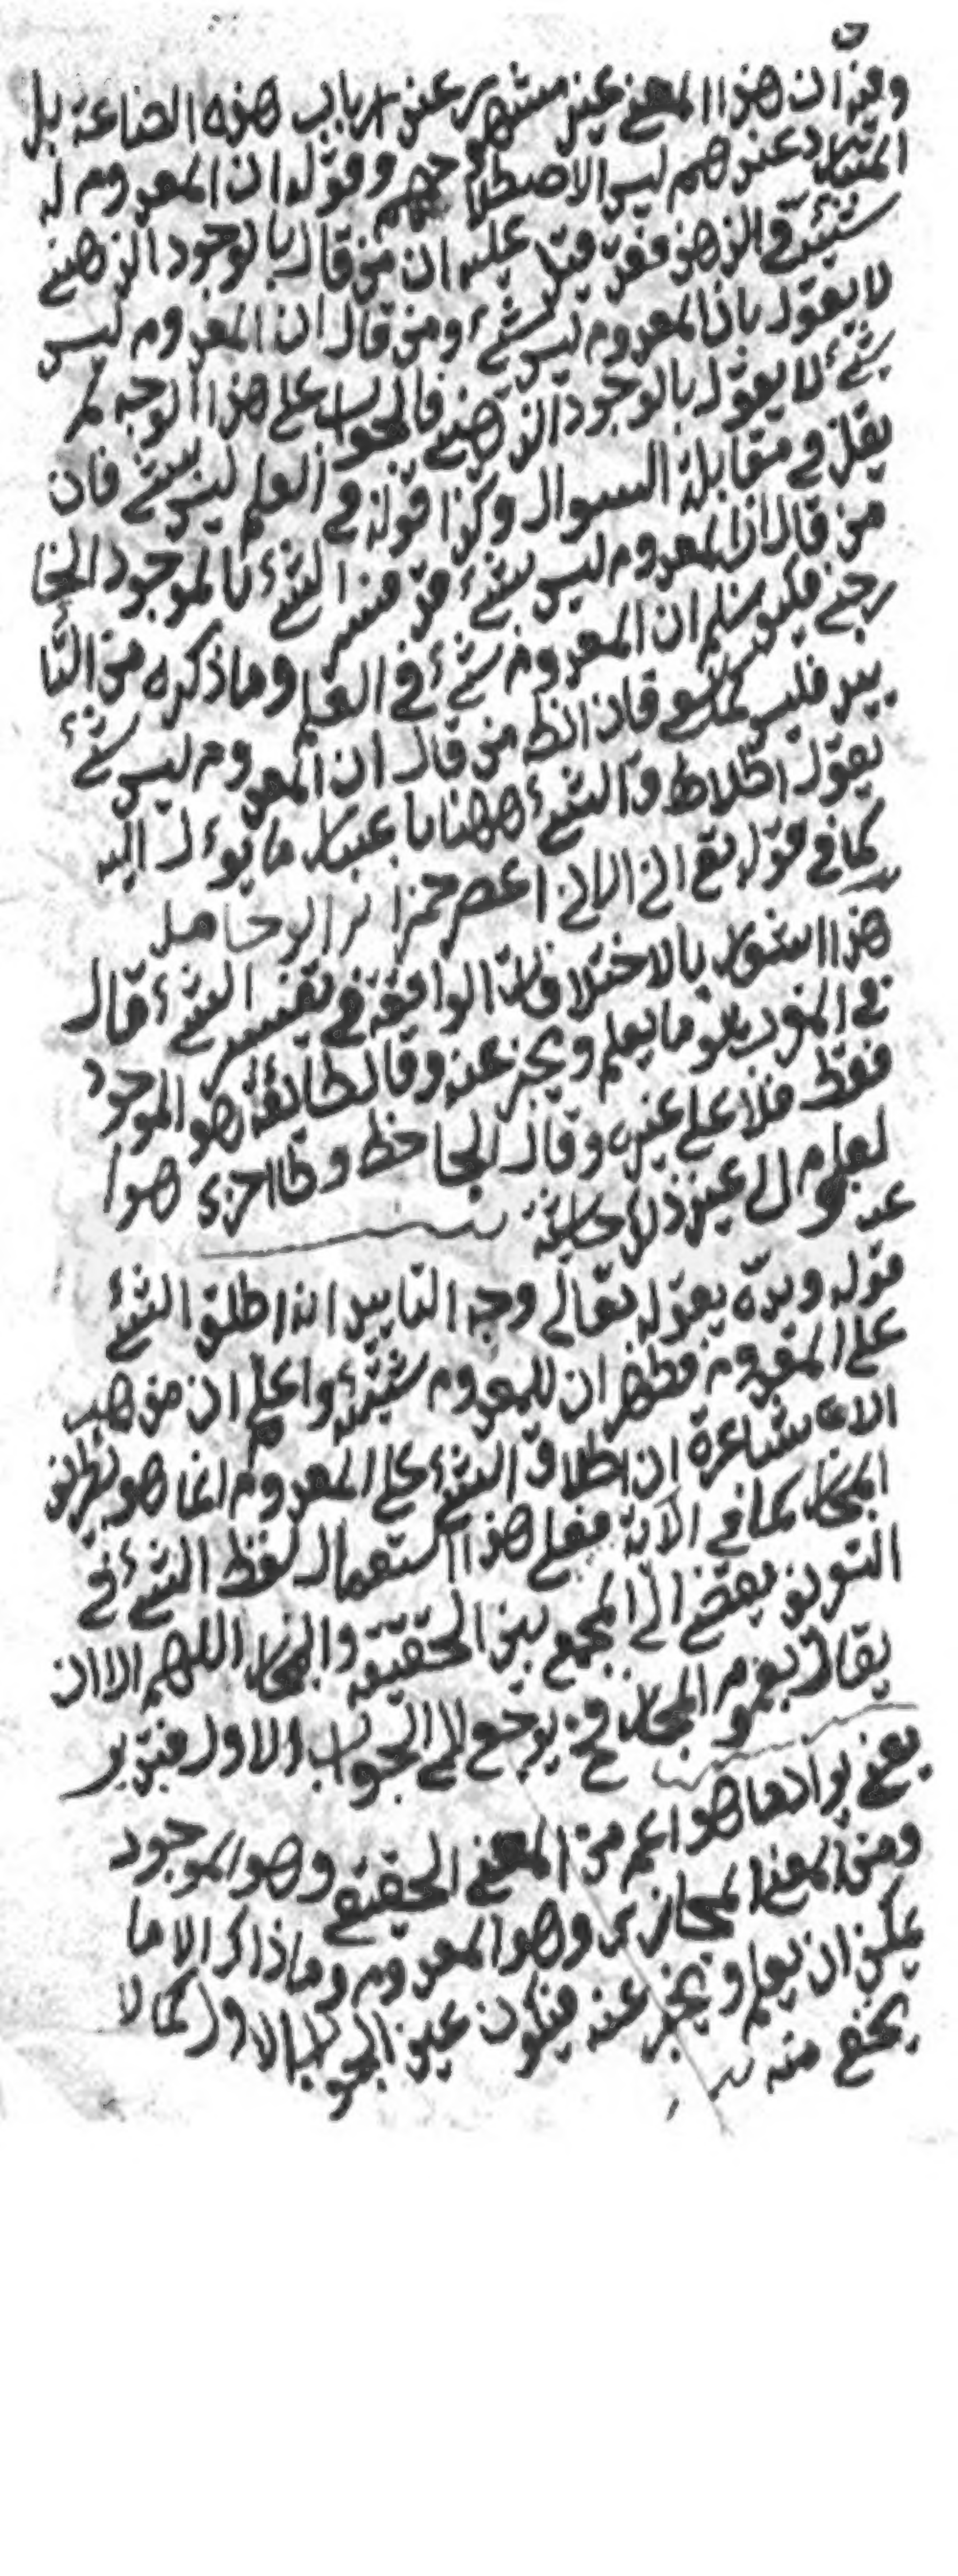 وفيه ان هذا المعنى غير مشتهر عند ارباب هذه الصناعة بل
المتبادر عندهم ليس الاصطلاحهم وقوله ان المعدوم له
شيئية في الذهن فقد قيل عليه ان من قال بالوجود الذهني
لا يقول بان المعدوم ليس شئ ومن قال ان المعدوم ليس
بشئ لا يقول بالوجود الذهني فالجواب على هذا الوجه لم
يقل في مقابلة السوال وكذا قوله في العلم ليس بشئ فان
من قال ان المعدوم ليس بشئ قد فسر الشئ بالموجود الخا
رجي فكيف يسلم ان المعدوم شئ في العلم وما ذكره من التا
ييد فليس كما ينبغي فان الظ من قال ان المعدوم ليس بشئ
يقول اطلاق الشئ ههنا باعتبار ما يؤل اليه
كما في قوله تع اني اراني اعصر خمرا
هذا السؤال بالاختلافات الواقعة في تفسير الشئ قال
في المذهب هو ما يعلم ويخبر عنه وقال طائفة هو الموجود
فقط فلا على غيره وقال الجاحظ وطائفة هو ا
لمعلوم
قوله ويده بقوله تعالى وجه التاييد انه اطلق الشئ
على المعدوم فظهر ان للمعدوم شيئية واعلم ان مذهب
الاشاعرة ان اطلاق الشئ على المعدوم انما هو بطريق
المجاز كما في الآية فعلى هذا استعمال لفظ الشئ في
التعريف يفضي الى الجمع بين الحقيقة والمجاز اللهم الا ان
يقال بعموم المجاز فح يرجع الى الجواب الاول فتدبر
يعني يراد ما هو اعم من المعنى الحقيقي وهو الموجود
ومن المعنى المجازي وهو المعدوم وما ذاك الا ما
يمكن ان يعلم ويخبر عنه فيكون عين الجواب الاول كما لا
يخفى منه